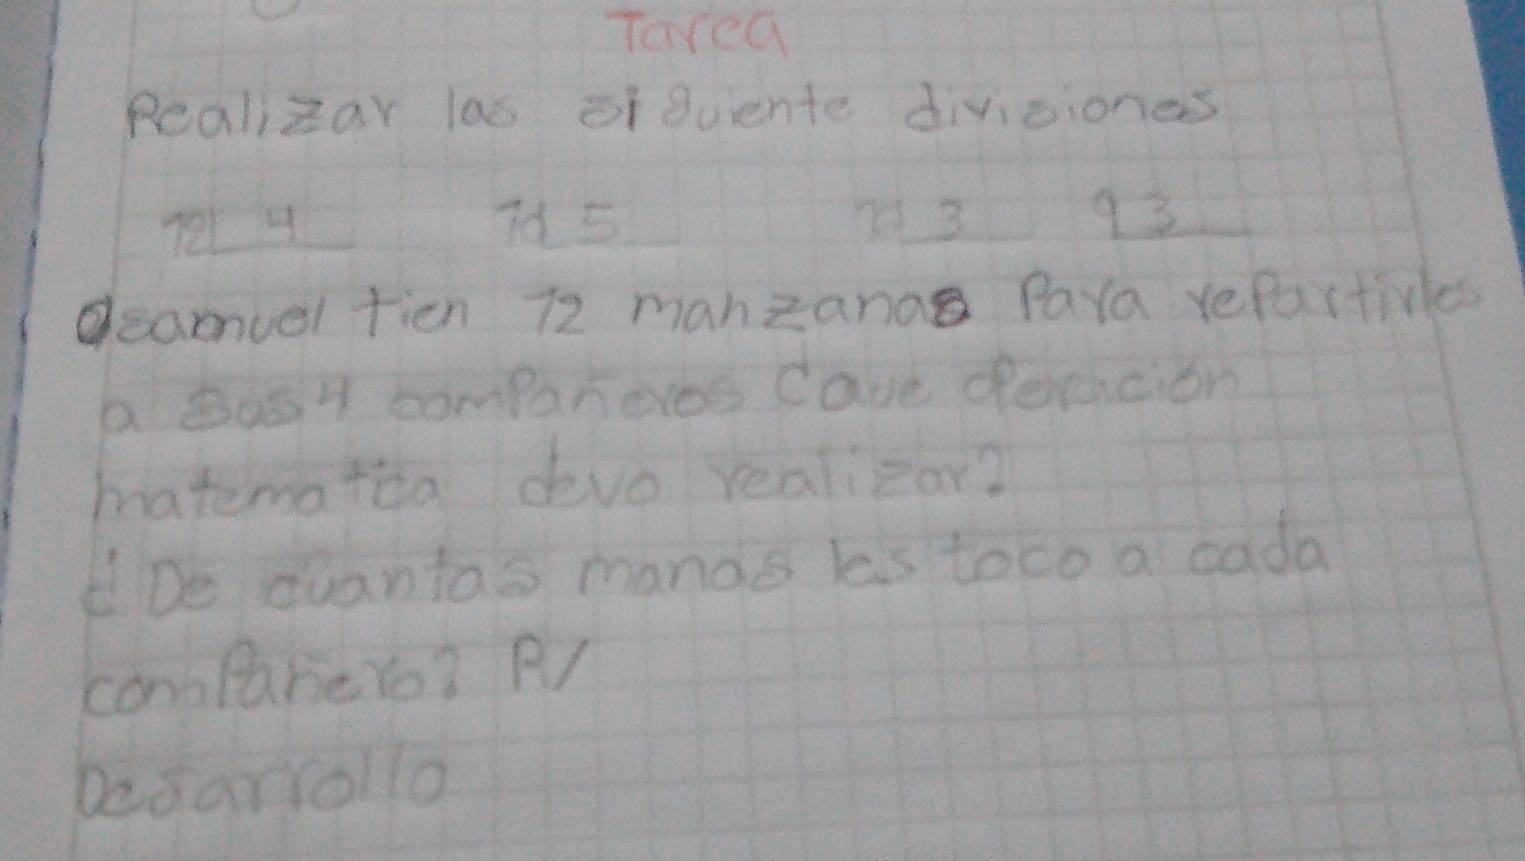 Tarea
Realizar las siguiente divisiones
72 4 7 5 7 3 9 3
a samuel tien 72 manzanas Para repartirles
a sus 4 compañeros Cave operacion
matematica devo realizar?
¿ De cuantas manas les toco a cada
compañero? R/
Desarrollo